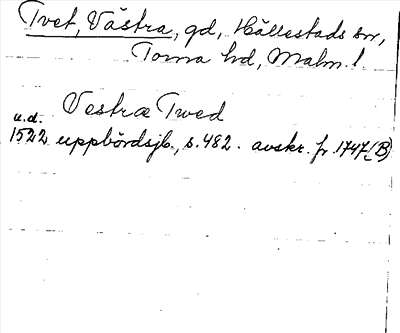 Tvet, Västra, gd, Hällestads sn,
Torna hd, Malm. l.
Vestræ Twed
u.d.
1522 uppbördsjb., s. 482. avskr. fr. 1747 (B)